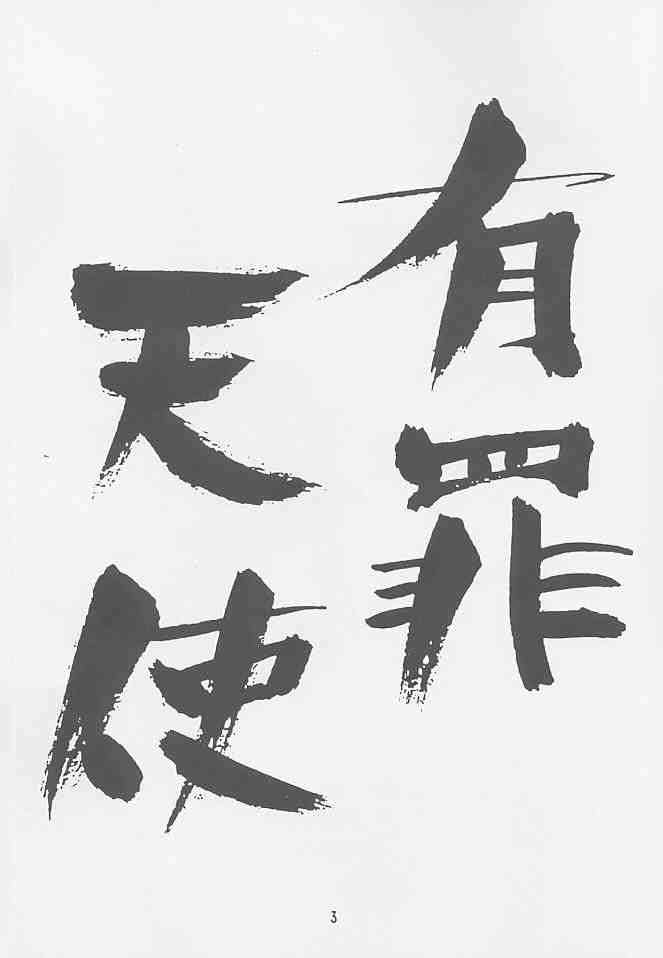 有罪
天使
3